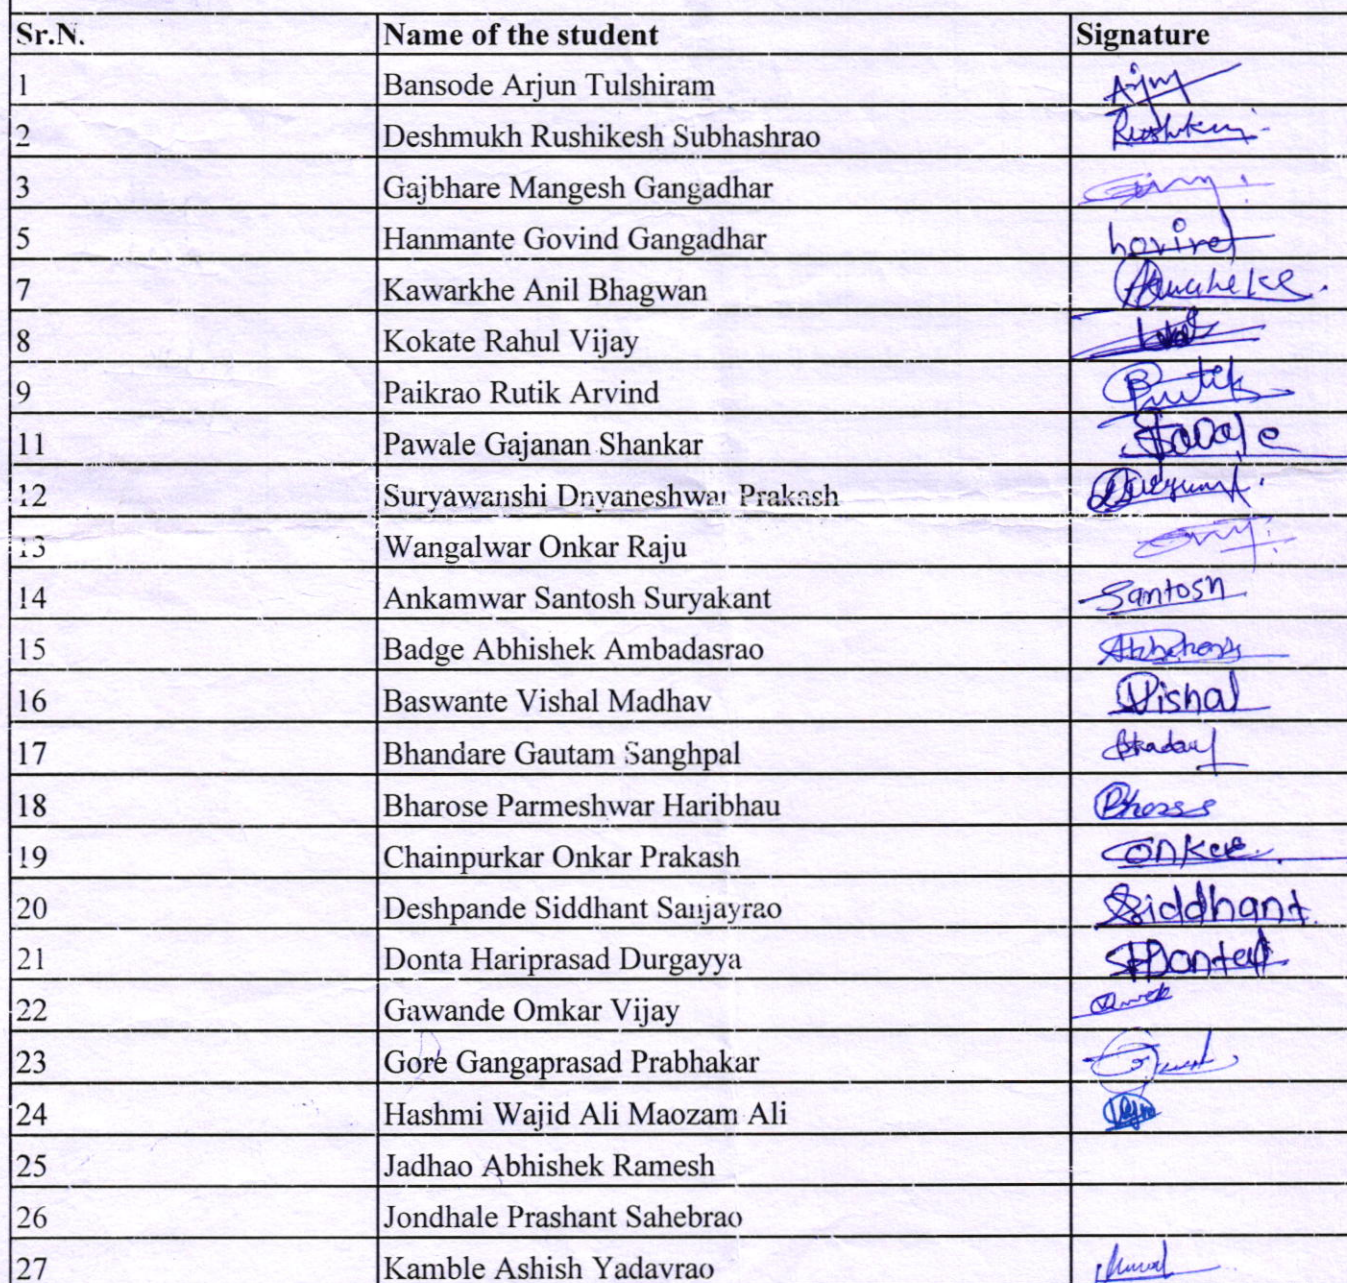 Sr.N. Name of the student Signature
1 Bansode Arjun Tulshiram Arjun
2 Deshmukh Rushikesh Subhashrao
3 Gajbhare Mangesh Gangadhar
5 Hanmante Govind Gangadhar
7 Kawarkhe Anil Bhagwan
8 Kokate Rahul Vijay
9 Paikrao Rutik Arvind Rutik
11 Pawale Gajanan Shankar
12 Suryawanshi Dnyaneshwar Prakash
13 Wangalwar Onkar Raju
14 Ankamwar Santosh Suryakant Santosh
15 Badge Abhishek Ambadasrao
16 Baswante Vishal Madhav Vishal
17 Bhandare Gautam Sanghpal
18 Bharose Parmeshwar Haribhau
19 Chainpurkar Onkar Prakash
20 Deshpande Siddhant Sanjayrao Siddhant
21 Donta Hariprasad Durgayya
22 Gawande Omkar Vijay
23 Gore Gangaprasad Prabhakar
24 Hashmi Wajid Ali Maozam Ali
25 Jadhao Abhishek Ramesh
26 Jondhale Prashant Sahebrao
27 Kamble Ashish Yadavrao